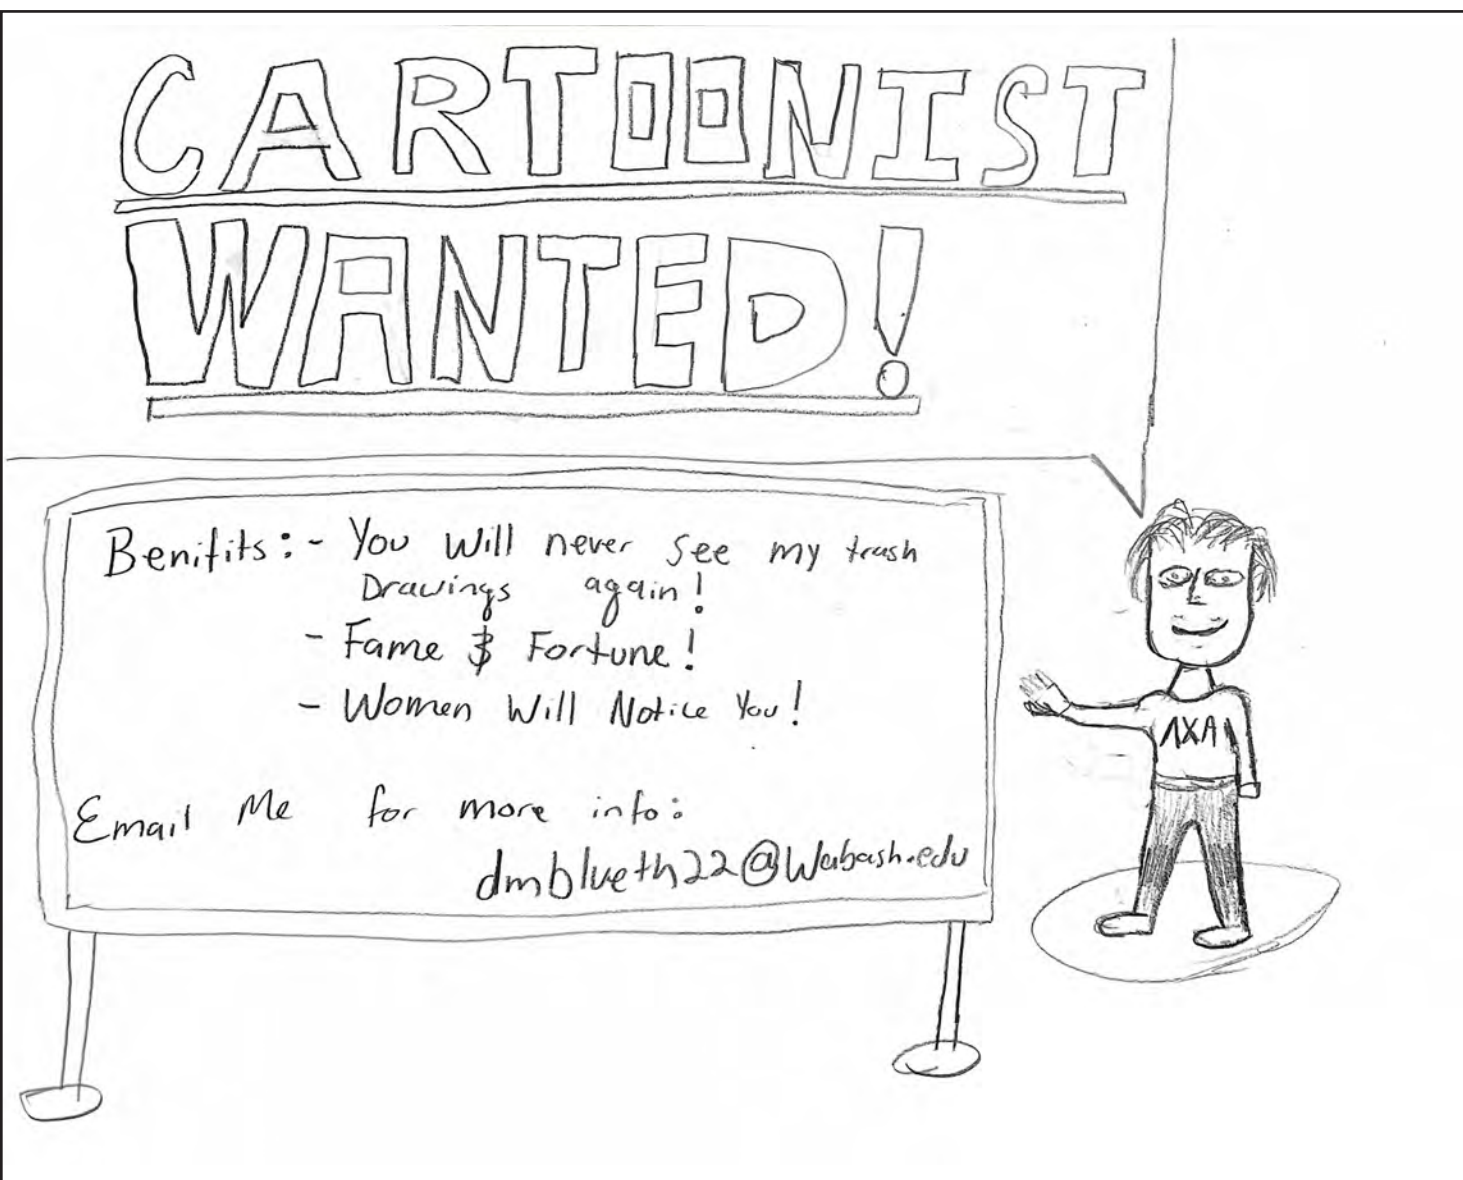 CARTOONIST
WANTED!
Benifits: - You Will never see my trash
Drawings again!
- Fame & Fortune!
- Women Will Notice You!
Email Me for more info:
dmblueth22@Wabash.edu
ΛΧΑ